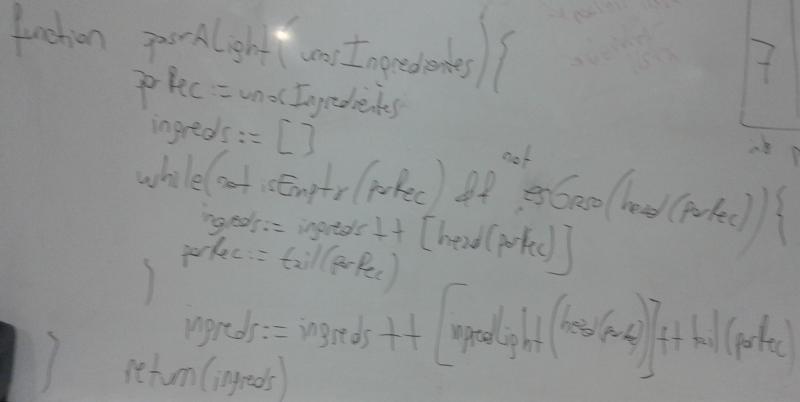 function pasrALight(unosIngredientes){
porRec := unosIngredientes
ingreds := []
not
while(not isEmpty(porRec) && esGraso(head(porRec))){
ingreds := ingreds ++ [head(porRec)]
porRec := tail(porRec)
}
ingreds := ingreds ++ [ingredLight(head(porRec))] ++ tail(porRec)
return(ingreds)
}
7